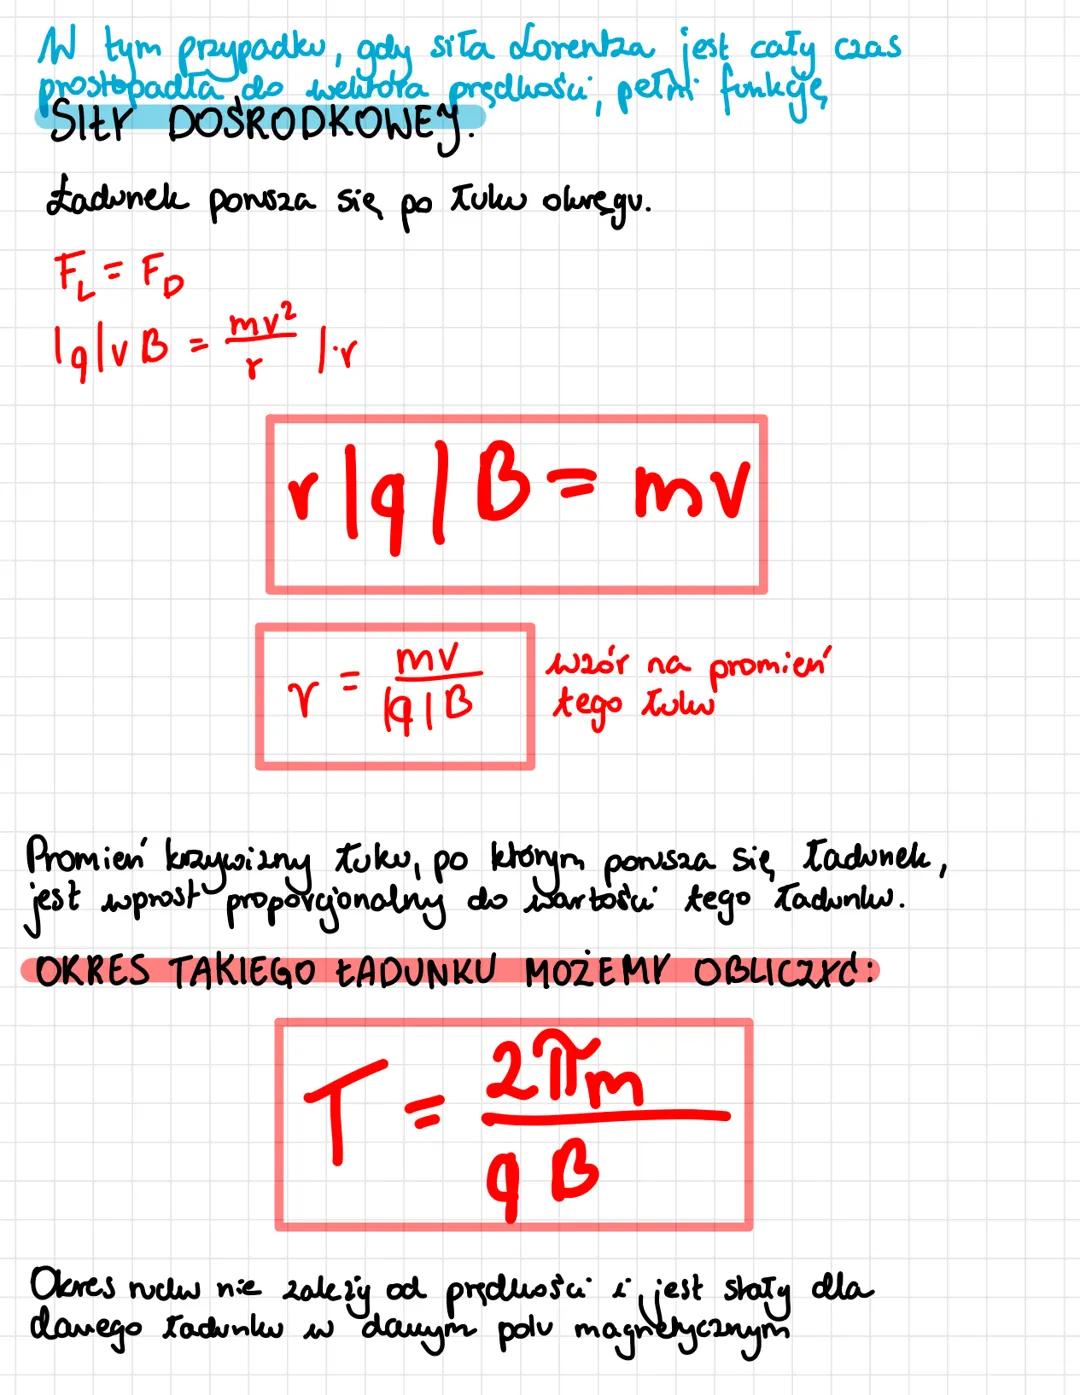 W tym przypadku, gdy siła Lorentza jest cały czas
prostopadła do wektora prędkości, pełni funkcję
SIŁY DOŚRODKOWEJ.
Ładunek porusza się po łuku okręgu.
F_L = F_D
|q|vB = mv²/r /·r
r|q|B = mv
r = mv/|q|B wzór na promień
tego łuku
Promień krzywizny łuku, po którym porusza się ładunek,
jest wprost proporcjonalny do wartości tego ładunku.
OKRES TAKIEGO ŁADUNKU MOŻEMY OBLICZYĆ:
T = 2πm/qB
Okres ruchu nie zależy od prędkości i jest stały dla
danego ładunku w danym polu magnetycznym